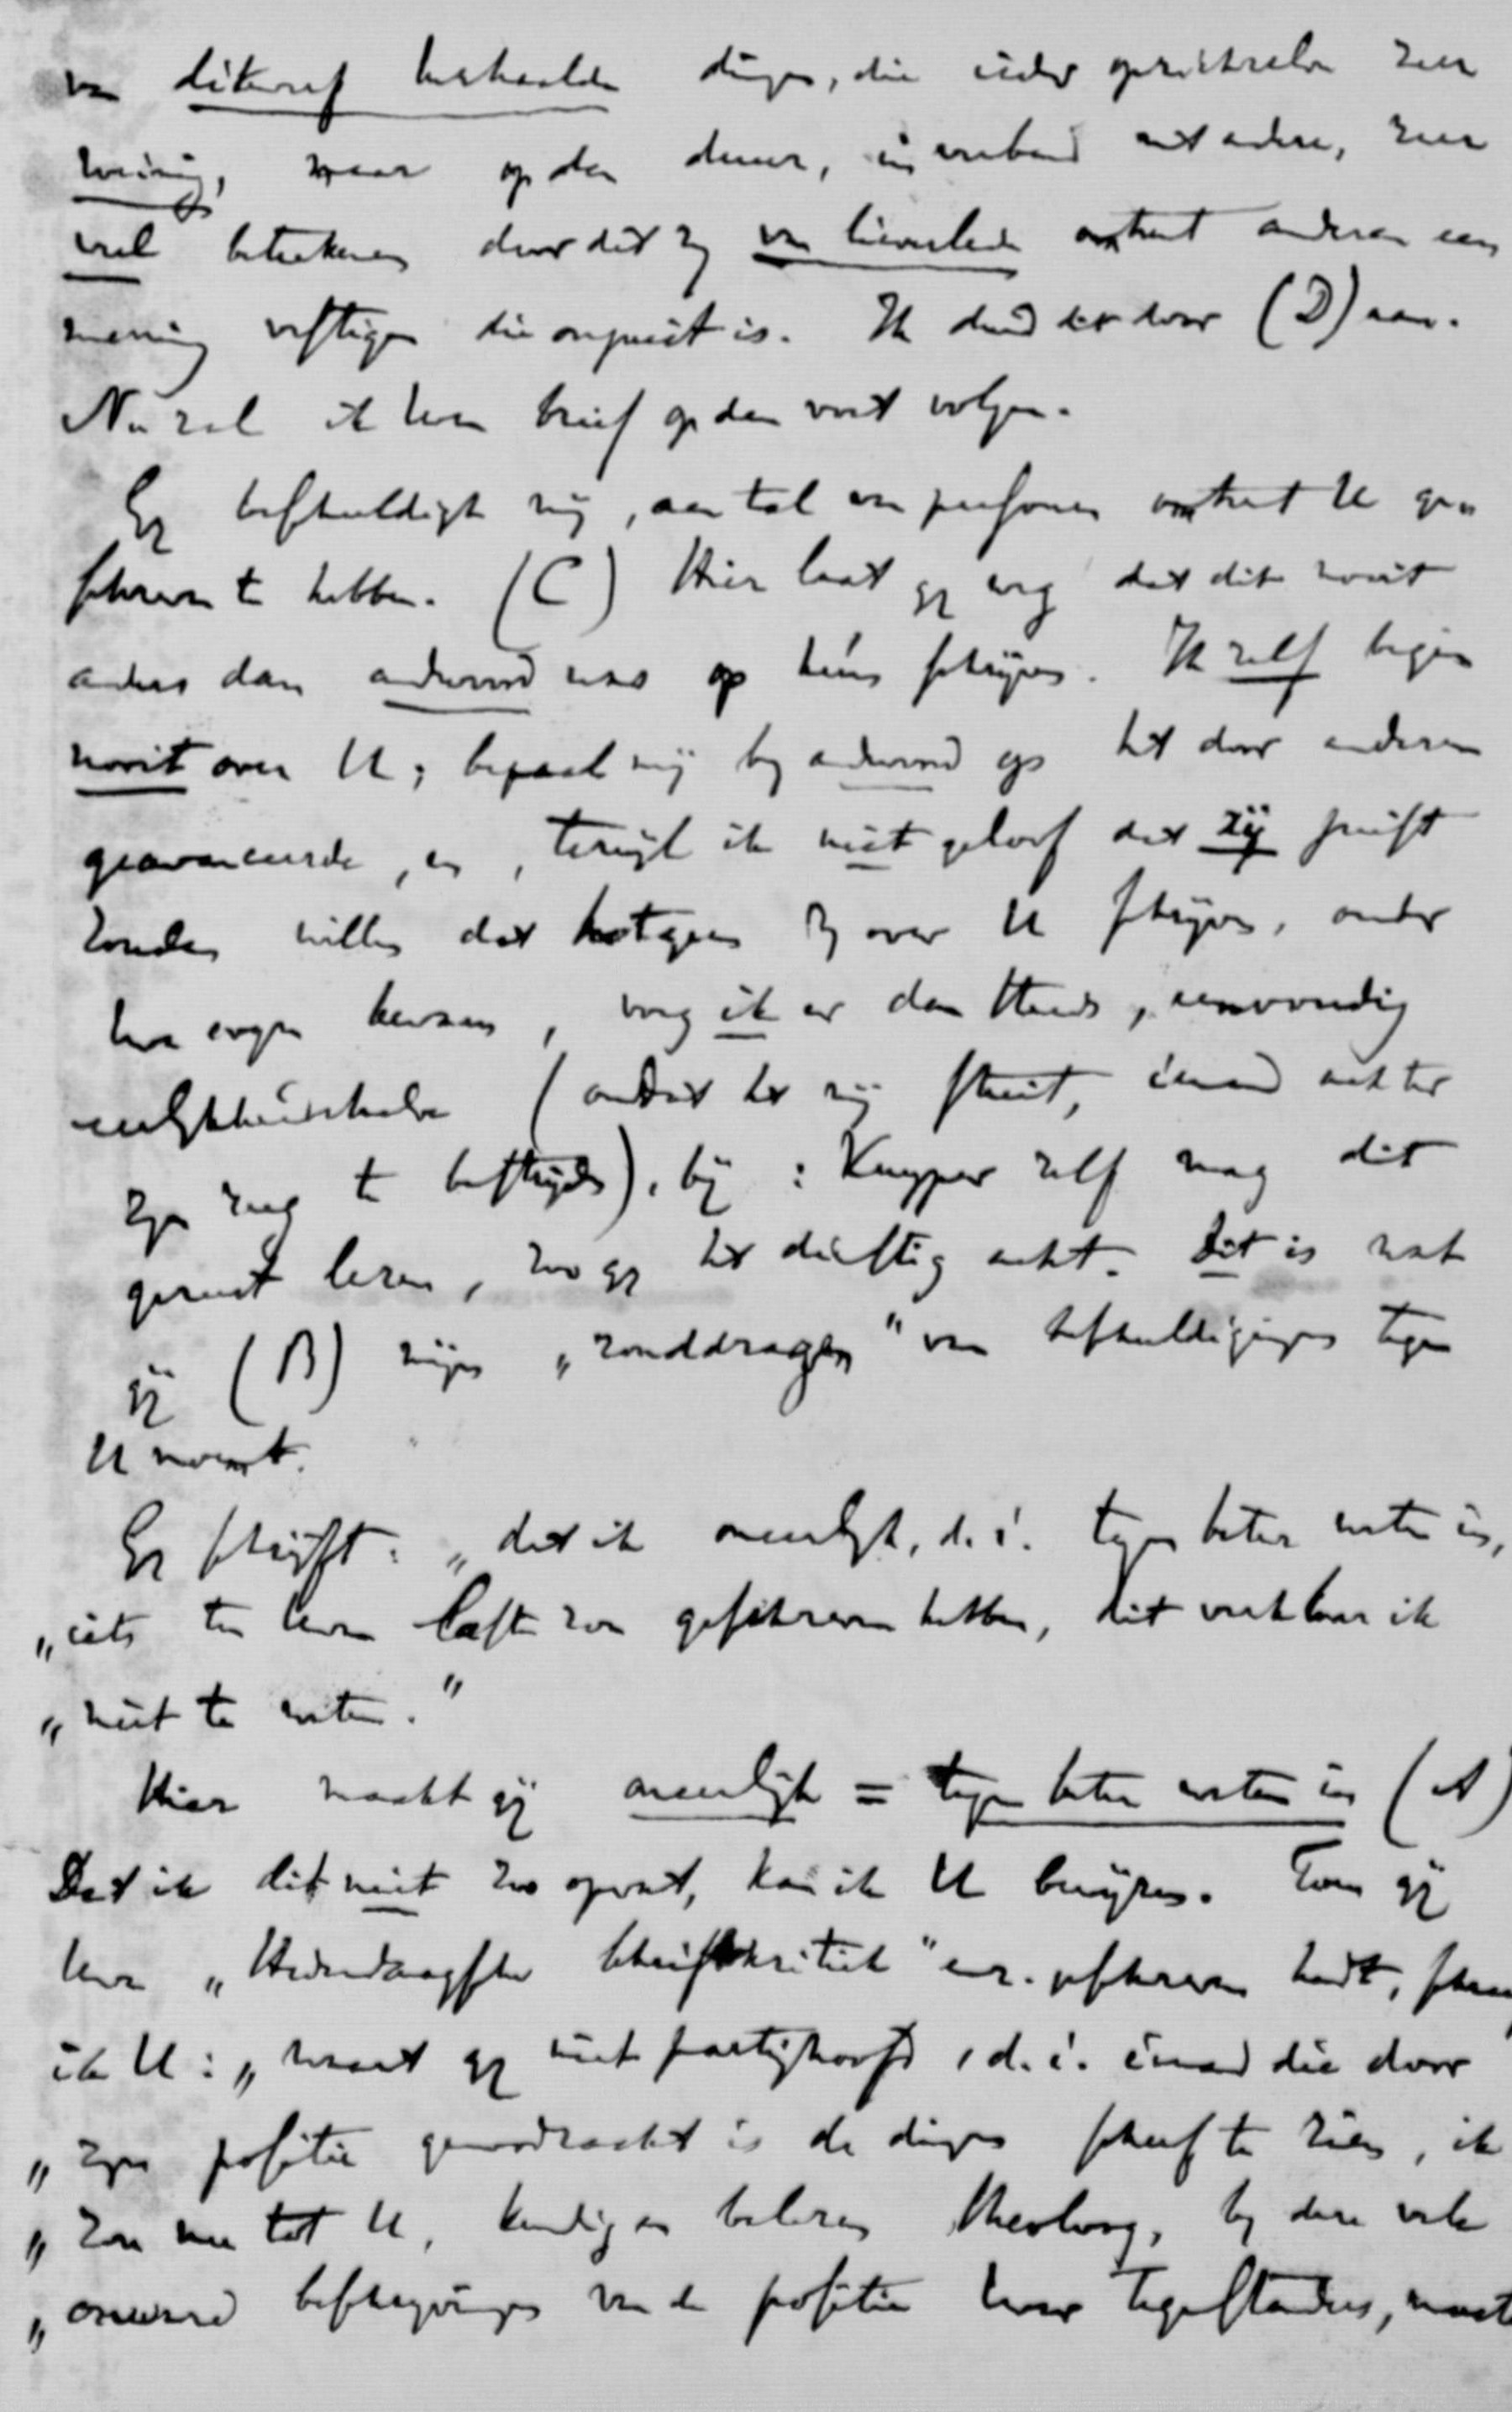 van dikwijls herhaalde dingen, die ieder op zichzelve zeer
weinig, maar op den duur, in verband met andere, zeer
veel beteekenen doordat zij van lieverlede omtrent anderen een
meening vestigen die onjuist is. Ik duid dit door (D) aan.
Nu zal ik Uwen brief op den voet volgen.
Gij beschuldigt mij, aan tal van personen omtrent U ge-
schreven te hebben. (C) Hier laat gij weg dat dit nooit
anders dan antwoord was op hun schrijven. Ik zelf begin
nooit over U; bepaal mij bij antwoord op het door anderen
geavanceerde, en, terwijl ik niet geloof dat zij juist
zouden willen dat hetgeen zij over U schrijven, onder
Uwe oogen kwam, voeg ik er dan steeds, eenvoudig
eerlijkheidshalve (omdat het mij stuit, iemand achter
zijn rug te bestrijden), bij: Kuyper zelf mag dit
gerust lezen, zoo gij het dienstig acht. Dit is wat
gij (B) mijn „ronddragen" van beschuldigingen tegen
U noemt.
Gij schrijft: „dat ik oneerlijk, d. i. tegen beter weten in,
„iets ten Uwen laste zou geschreven hebben, dit verklaar ik
„niet te weten."
Hier maakt gij oneerlijk = tegen beter weten in (A)
Dat ik dit niet zoo opvat, kan ik U bewijzen. Toen gij
Uwe „Hedendaagsche Schriftkritiek" enz. geschreven hadt, schreef
ik U: „waart gij niet partijhoofd, d. i. iemand die door
„zijn positie genoodzaakt is de dingen scheef te zien, ik
„zou me tot U, kundig en belezen theoloog, bij deze vele
„onware beschrijvingen van de positie Uwer tegenstanders, moeten